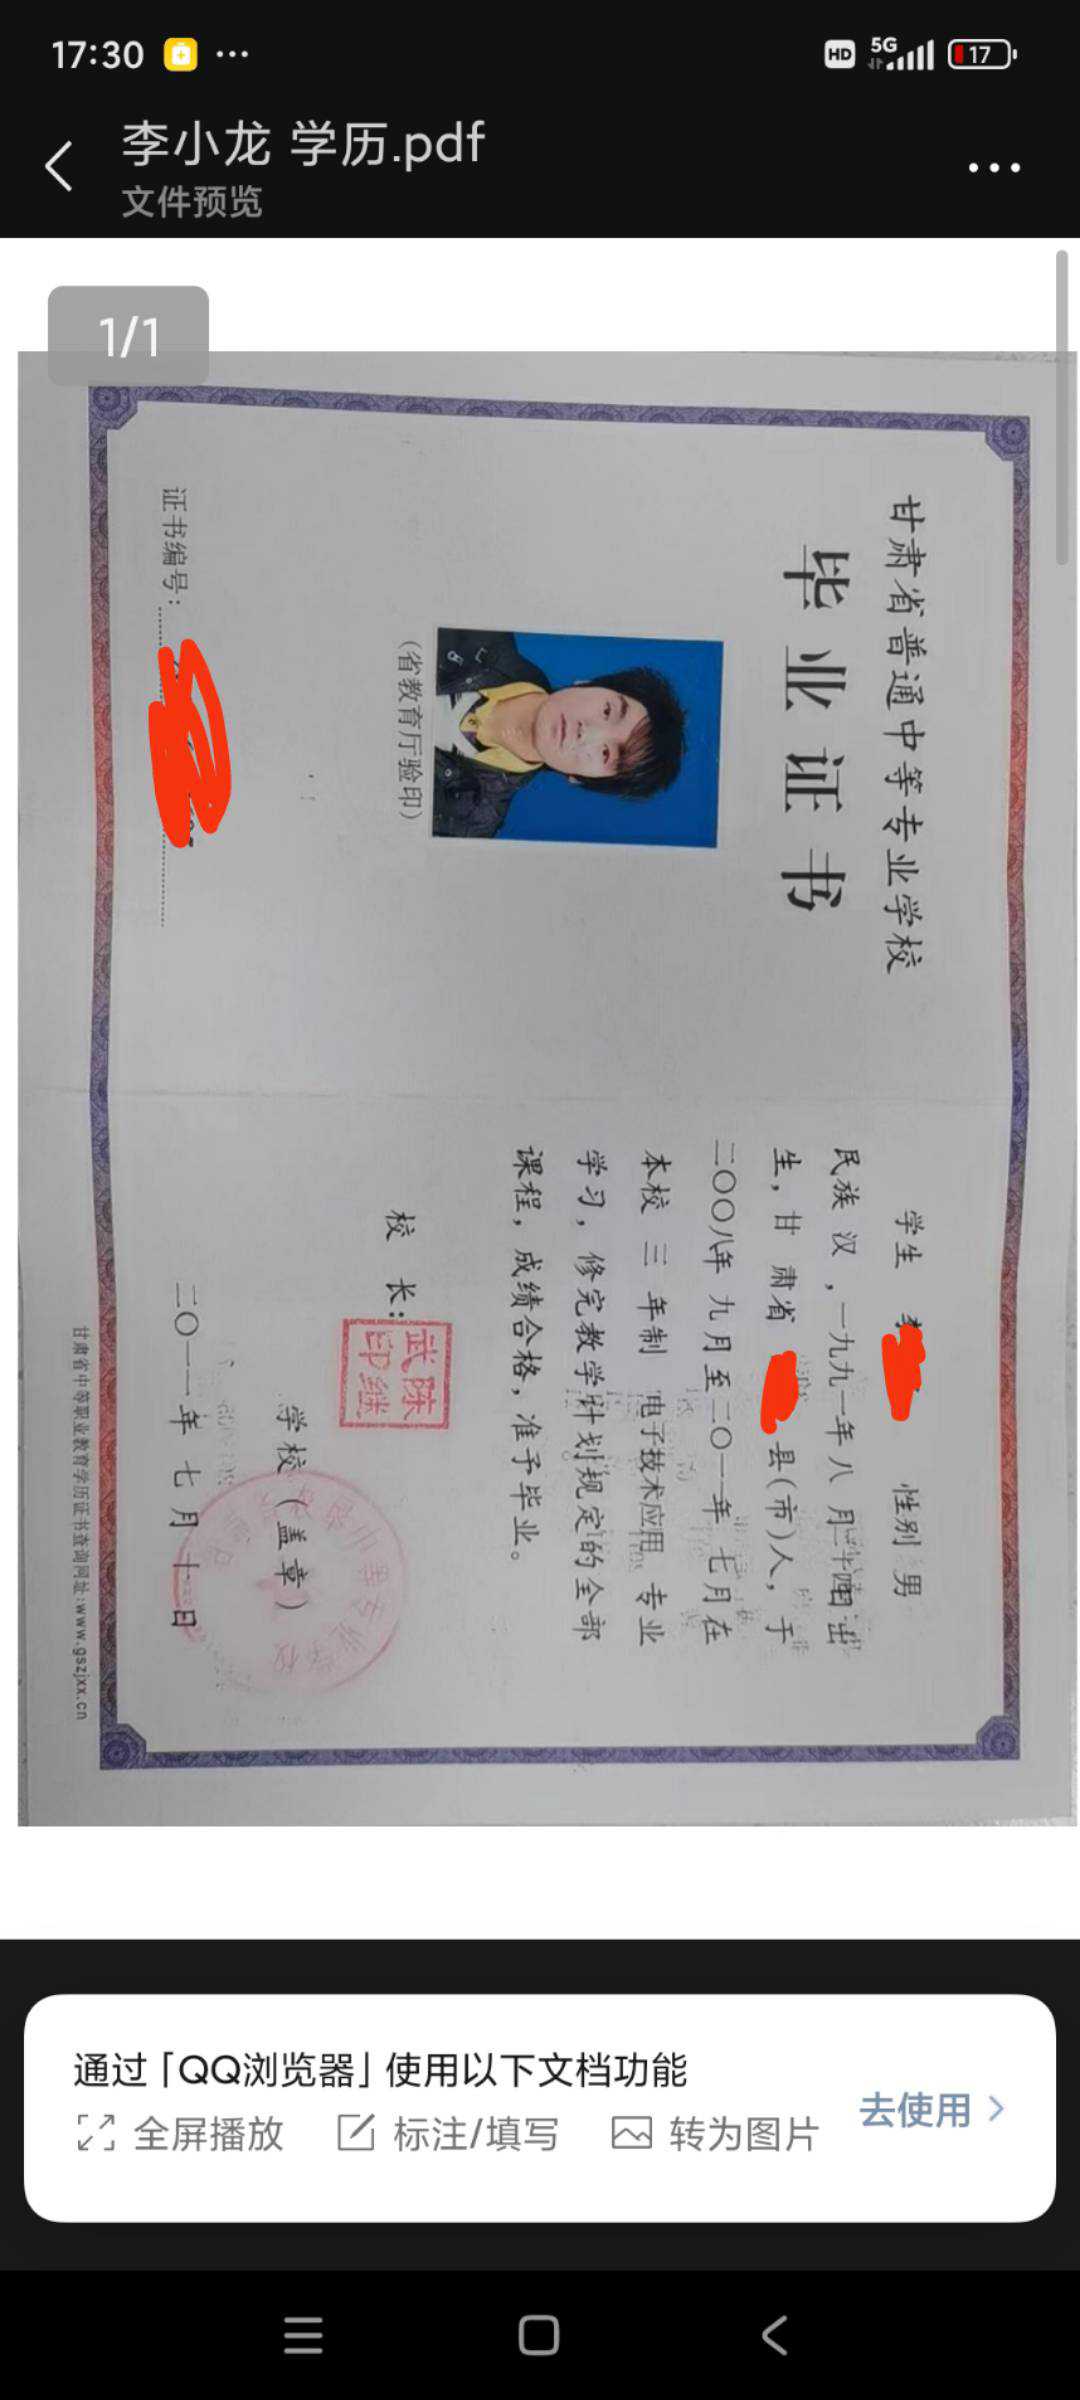 17:30
HD 5G 17
李小龙 学历.pdf
文件预览
1/1
甘肃省普通中等专业学校
毕业证书
(省教育厅验印)
证书编号:
学生 性别 男
民族 汉 , 一九九一年 八 月 日出
生, 甘 肃省 县(市)人, 于
二〇〇八年 九 月至二〇一一年 七 月在
本校 三 年制 电子技术应用 专业
学习, 修完教学计划规定的全部
课程, 成绩合格, 准予毕业。
校 长:
武陈
印继
学校(盖章)
二〇一一年 七 月 十 日
甘肃省中等职业教育学历证书查询网址:www.gszjxx.cn
通过「QQ浏览器」使用以下文档功能
全屏播放 标注/填写 转为图片
去使用